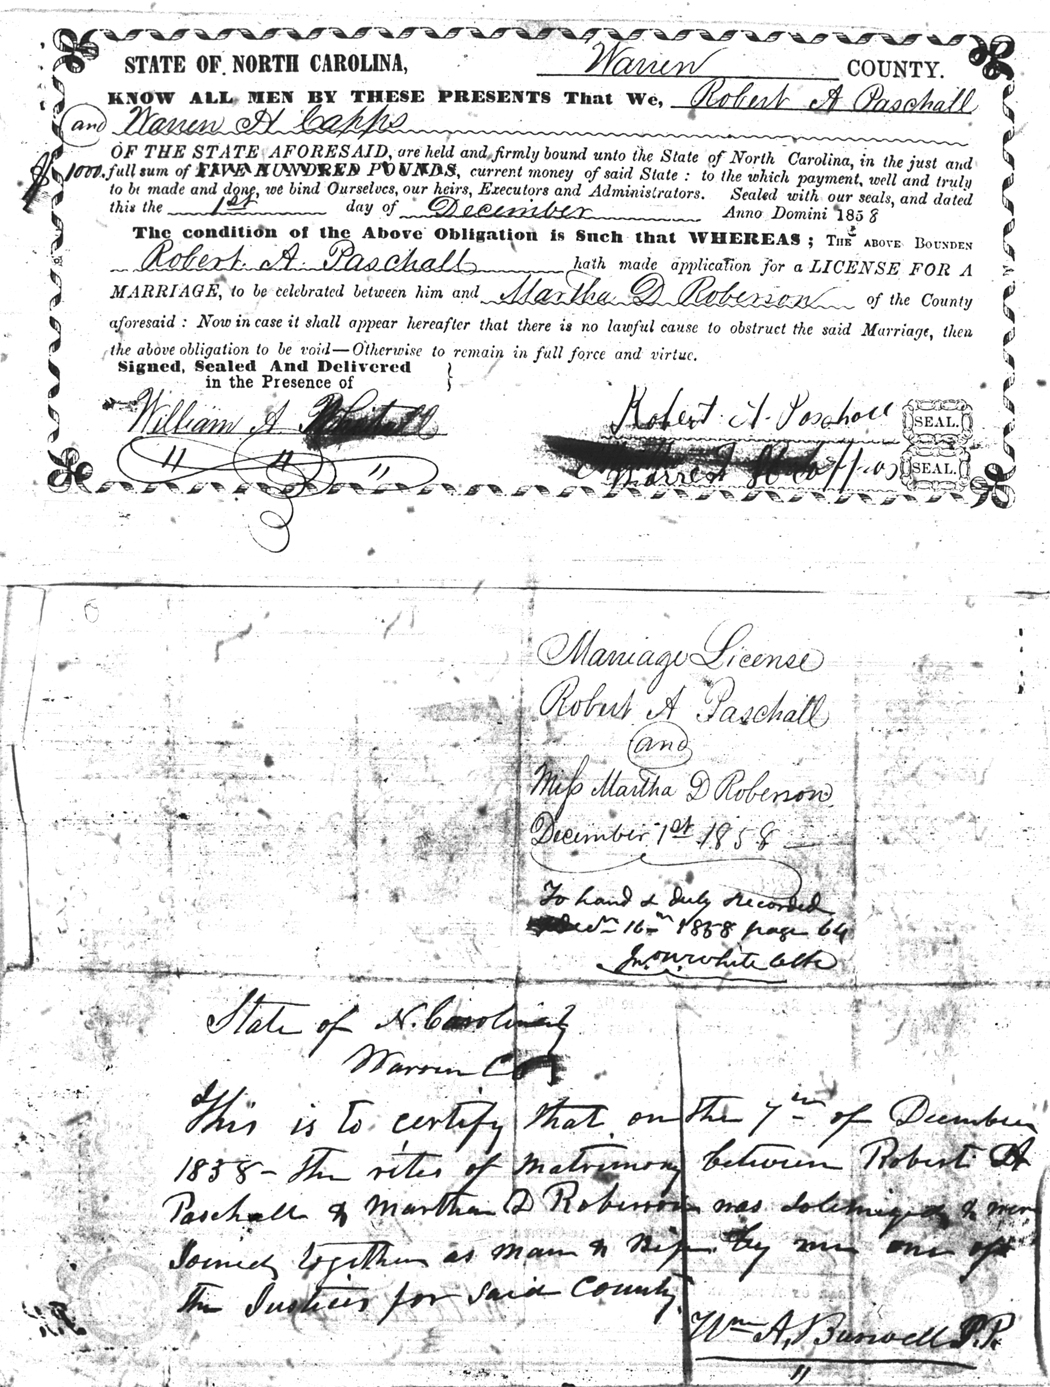 STATE OF NORTH CAROLINA, Warren COUNTY.
KNOW ALL MEN BY THESE PRESENTS That We, Robert A Paschall
and Warren H Capps
OF THE STATE AFORESAID, are held and firmly bound unto the State of North Carolina, in the just and
$1000. full sum of FIVE HUNDRED POUNDS, current money of said State : to the which payment, well and truly
to be made and done, we bind Ourselves, our heirs, Executors and Administrators. Sealed with our seals, and dated
this the 1st day of December Anno Domini 1858
The condition of the Above Obligation is Such that WHEREAS ; THE ABOVE BOUNDEN
Robert A Paschall hath made application for a LICENSE FOR A
MARRIAGE, to be celebrated between him and Martha D Roberson of the County
aforesaid : Now in case it shall appear hereafter that there is no lawful cause to obstruct the said Marriage, then
the above obligation to be void—Otherwise to remain in full force and virtue.
Signed, Sealed And Delivered
in the Presence of
William A Robert A Paschall SEAL.
SEAL.
Marriage License
Robert A Paschall
and
Miss Martha D Roberson
December 1st 1858
To hand & duly recorded
16th 1858 page 64
Jno. W. White Clk
State of N. Carolina
Warren Co
This is to certify that on the 7th of December
1858 - the rites of matrimony between Robert A
Paschall & Martha D Roberson was solemnized & were
Joined together as man & wife by me one of
the Justices for said County
Wm A, Burwell J.P.